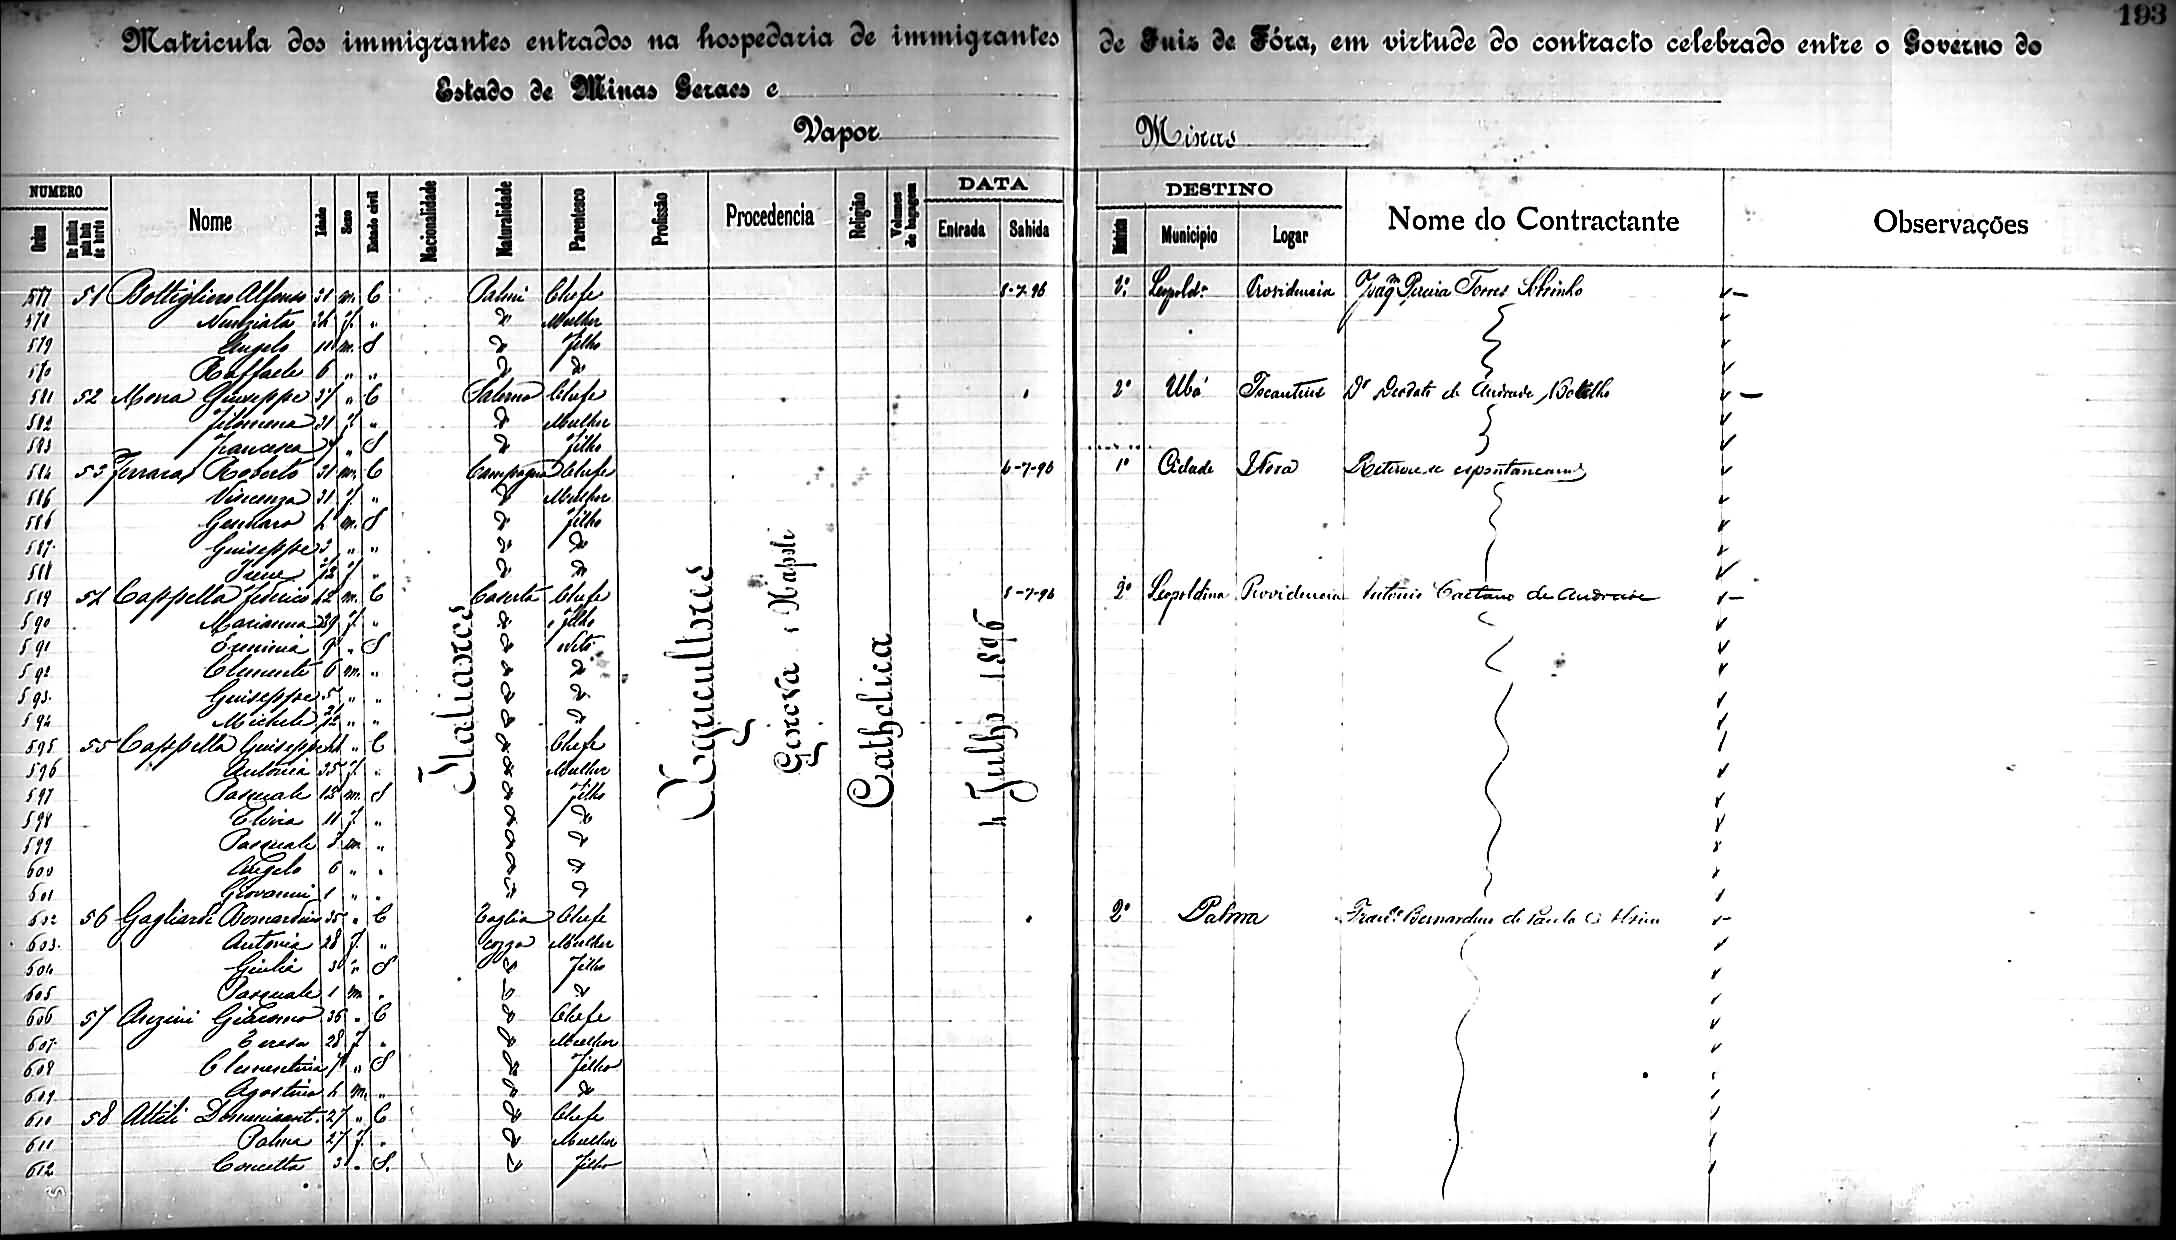 193
Matricula dos immigrantes entrados na hospedaria de immigrantes de Juiz de Fóra, em virtude do contracto celebrado entre o Governo do
Estado de Minas Geraes e
Vapor Minas
NUMERO Nome Idade Sexo Estado civil Nacionalidade Naturalidade Parentesco Profissão Procedencia Religião Volumes de bagagem DATA DESTINO Nome do Contractante Observações
Ordem De familia pela lista de bordo Entrada Sahida Districto Municipio Logar
577 51 Bottigliero Alfonso 31 m. C Palmi Chefe 8-7-96 2º Leopolda Providencia Joaqm Pereira Torres Sobrinho
578 Nunziata f. " Mulher
579 Angelo 11 m. S Filho
Raffaele 6 " "
581 52 Mona Giuseppe 37 " C Salerno Chefe 2º Ubá Tocantins Dr Deodato de Andrade Botelho
582 Filomena 31 f. " Mulher
583 Francesca 7 " S Filho
584 53 Ferrara Roberto 31 m. C Campagna Chefe 6-7-96 1º Cidade J Fora Retirou-se espontaneame
585 Vincenza 31 f. " Mulher
586 Gennaro 4 m. S Filho
587 Giuseppe 3 " "
588 Irene f. "
589 54 Cappella Federico 62 m. C Caserta Chefe 8-7-96 2º Leopoldina Providencia Antonio Caetano de Andrade
590 Marianna 39 f. " Filho
591 Erminia 9 " S Neto
592 Clemente 6 m. "
593 Giuseppe 5 " "
594 Michele " "
595 55 Cappella Giuseppe 44 " C Chefe
596 Antonia 35 f. " Mulher
597 Pasquale 15 m. S Filho
598 Elvira 11 f. "
599 Pasquale 8 m "
600 Angelo 6 " "
601 Giovanni 1 " "
602 56 Gagliardi Bernardino 35 " C Taglia Chefe 2º Palma Franco Bernardino de Paula
603 Antonia 28 f. " cozzo Mulher
604 Giulia 3 " S Filho
605 Pasquale 1 m "
606 57 Anzini Giacomo 36 " C Chefe
607 Teresa 28 f " Mulher
608 Clementina 7 " S Filho
609 Agostino 4 m. "
610 58 Attili Domenicant. 27 " C Chefe
611 Palma 27 f. " Mulher
612 Concetta 3 " S. Filho
Italianos
Agricultores
Genova e Napoli
Catholica
4 Julho 1896